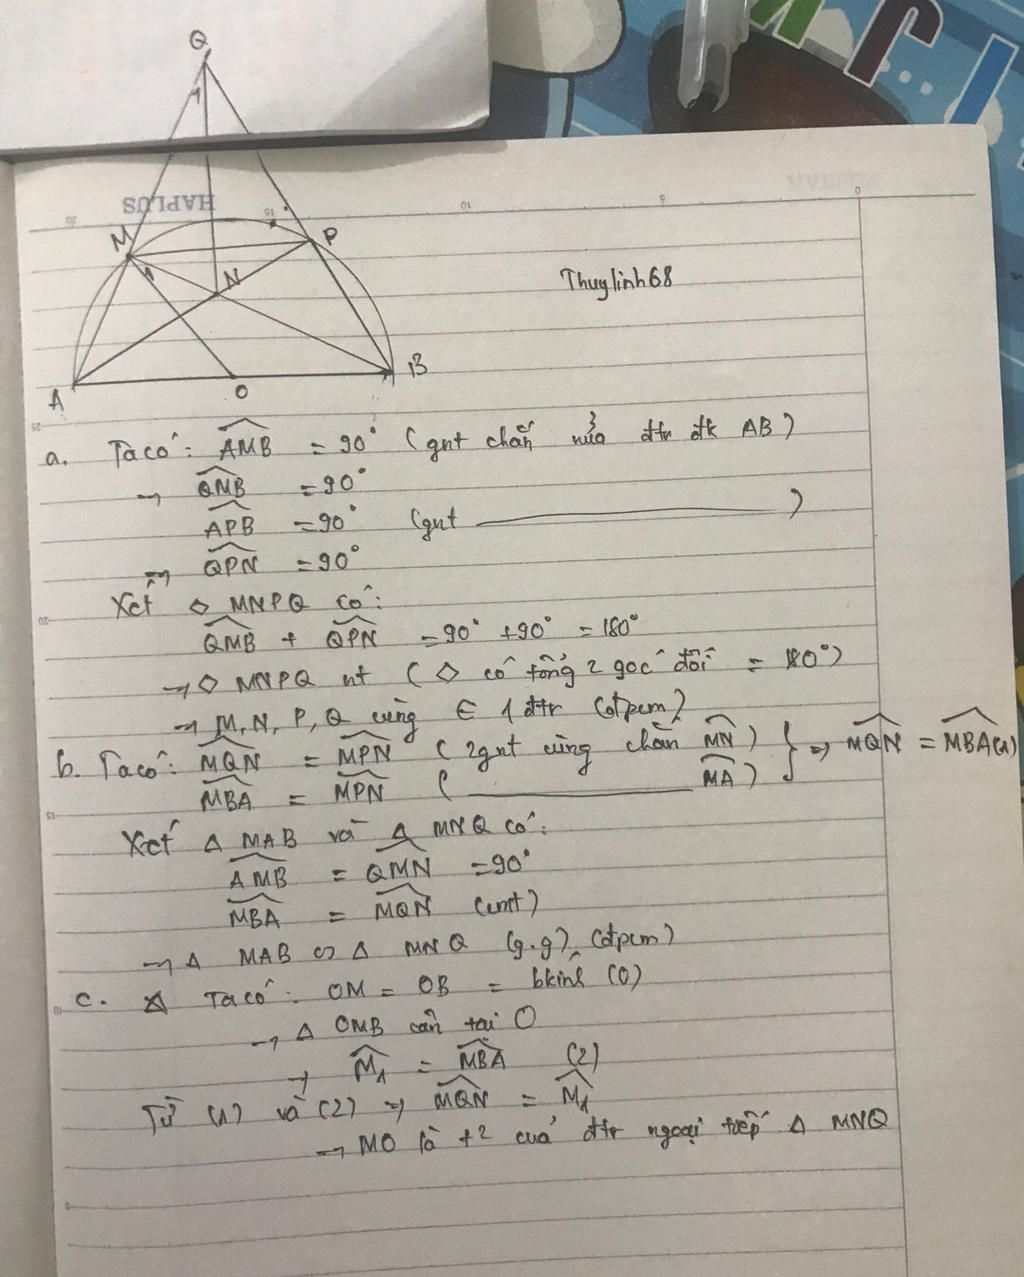 Q
1
HAPLUS
20
15
10
5
0
M
P
1
N
Thuylinh68
A
O
B
25
a. Ta có: AMB = 90° (gnt chắn nửa đtr đk AB)
→ QMB = 90°
APB = 90° (gnt ———)
→ QPN = 90°
Xét ◇ MNPQ có:
20
QMB + QPN = 90° + 90° = 180°
→ ◇ MNPQ nt ( ◇ có tổng 2 góc đối = 180°)
→ M, N, P, Q cùng ∈ 1 đtr (đpcm)
b. Ta có: MQN = MPN ( 2gnt cùng chắn MN ) } ⇒ MQN = MBA (1)
MBA = MPN ( ——— MA )
15
Xét Δ MAB và Δ MNQ có:
AMB = QMN = 90°
MBA = MQN (cmt)
→ Δ MAB ∽ Δ MNQ (g.g) (đpcm)
c. Ta có: OM = OB = bkính (O)
10
→ Δ OMB cân tại O
→ M₁ = MBA (2)
Từ (1) và (2) ⇒ MQN = M₁
→ MO là t2 của đtr ngoại tiếp Δ MNQ
5